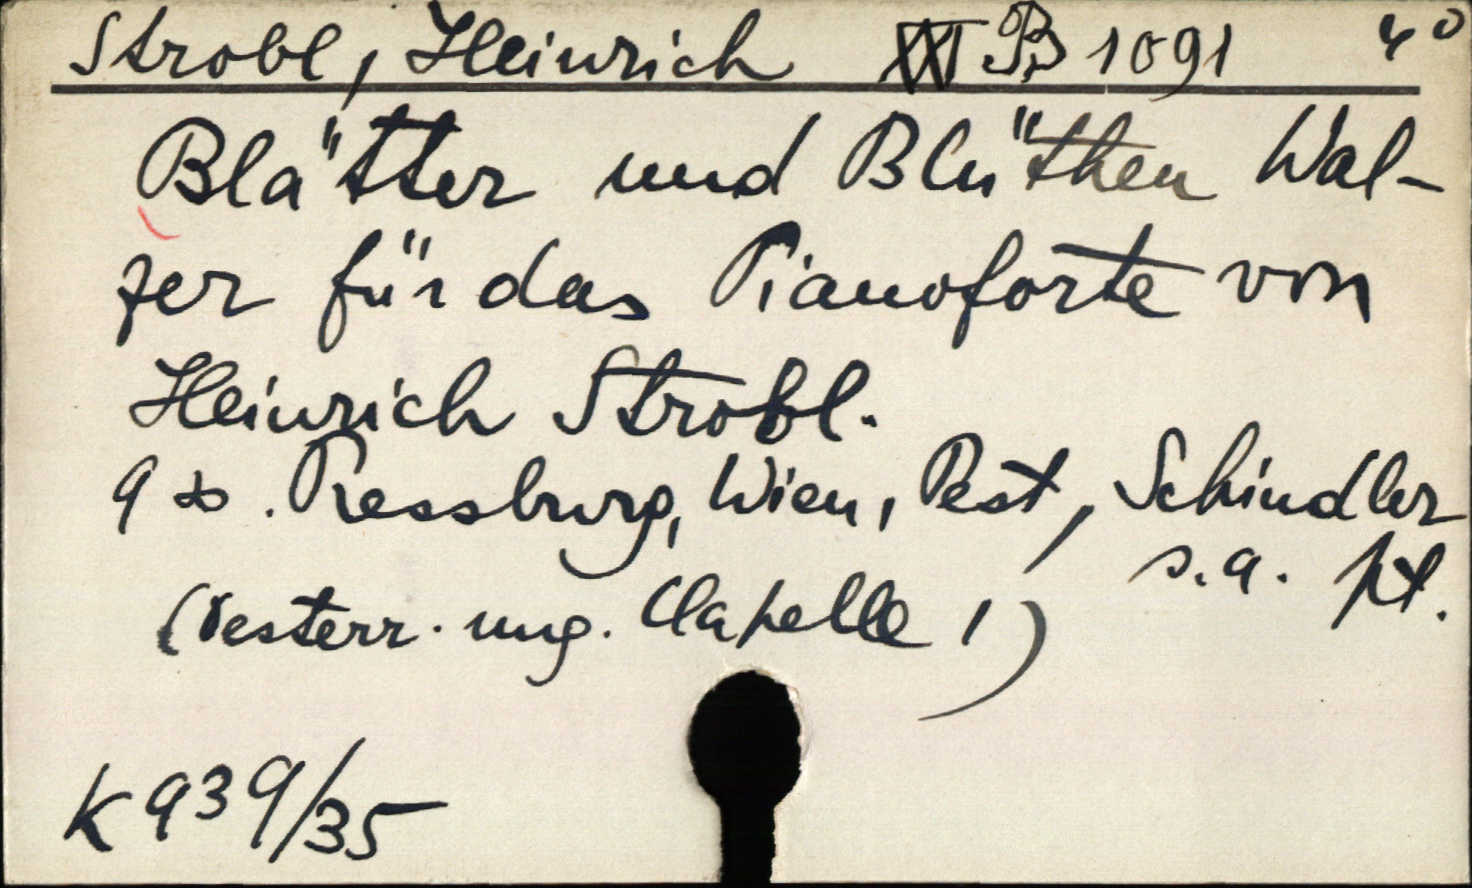 Strobl, Heinrich XXI B 1091 4°
Blätter und Blüthen Wal-
zer für das Pianoforte von
Heinrich Strobl.
Pressburg, Wien, Pest, Schindler
s.a. pl.
(oesterr. ung. Capelle 1)
K 939/35